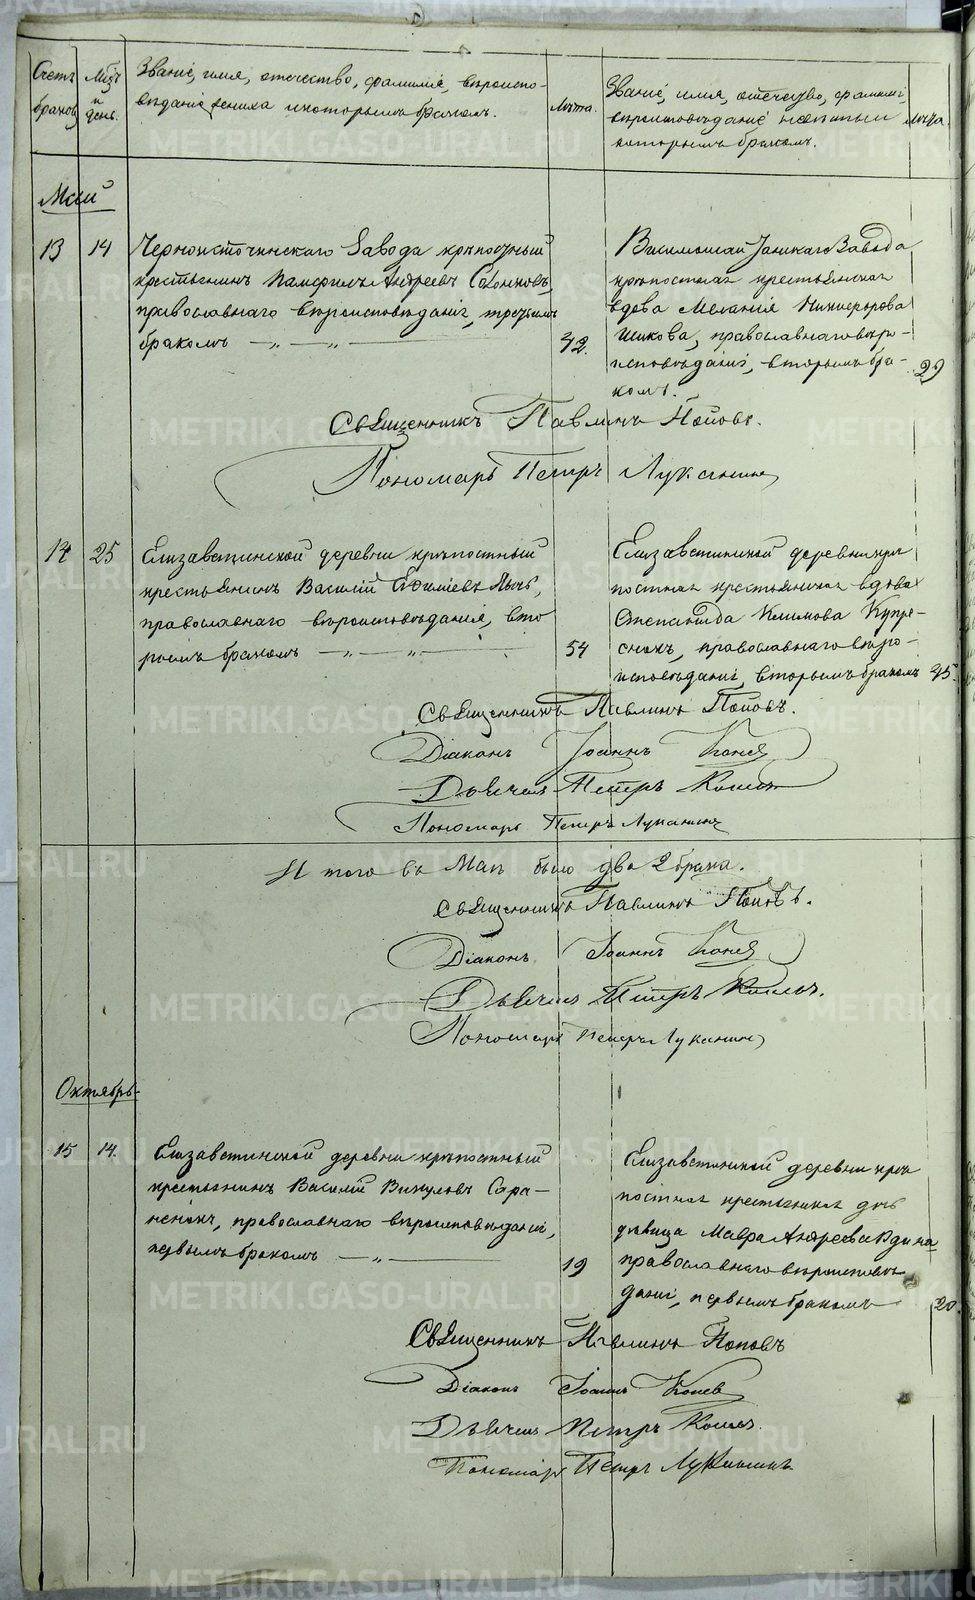 Счетъ браковъ
Мѣць и день.
Званіе, имя, отечество, фамилія, вѣроиспо-
вѣданіе жениха и которымъ бракомъ.
Лѣта.
Званіе, имя, отечество, фамилія,
вѣроисповѣданіе невѣсты и
которымъ бракомъ.
Лѣта.
Май
13
14
Черноисточинскаго Завода крѣпостный
крестьянинъ Памфилъ Андреевъ
православнаго вѣроисповѣданія, третьимъ
бракомъ — „ — „ —
42.
Висимошайтанскаго Завода
крѣпостная крестьянская
вдова Меланія Никифорова
православнаго вѣро-
исповѣданія, вторымъ бра-
комъ.
29
Священникъ Павлинъ Поповъ.
Пономарь Петръ Луканинъ
14
25
Елизаветинской деревни крѣпостный
крестьянинъ Василій
православнаго вѣроисповѣданія, вто
рымъ бракомъ — „ — „ —
54
Елизаветинской деревни крѣ
постная крестьянская вдова
Степанида Климова
православнаго вѣро-
исповѣданія, вторымъ бракомъ
45.
Священникъ Павлинъ Поповъ.
Діаконъ Іоаннъ Коневъ
Дьячекъ Петръ
Пономарь Петръ Луканинъ
И того въ Маѣ было два 2 брака.
Священникъ Павлинъ Поповъ.
Діаконъ Іоаннъ Коневъ
Дьячекъ Петръ
Пономарь Петръ Луканинъ
Октябрь
15
14.
Елизаветинской деревни крѣпостный
крестьянинъ Василій Викуловъ
православнаго вѣроисповѣданія,
первымъ бракомъ — „ —
19
Елизаветинской деревни крѣ
постная крестьянская дочь
дѣвица Мавра Андреева
православнаго вѣроисповѣ
данія, первымъ бракомъ
20.
Священникъ Павлинъ Поповъ
Діаконъ Іоаннъ Коневъ
Дьячекъ Петръ
Пономарь Петръ Луканинъ
METRIKI.GASO-URAL.RU